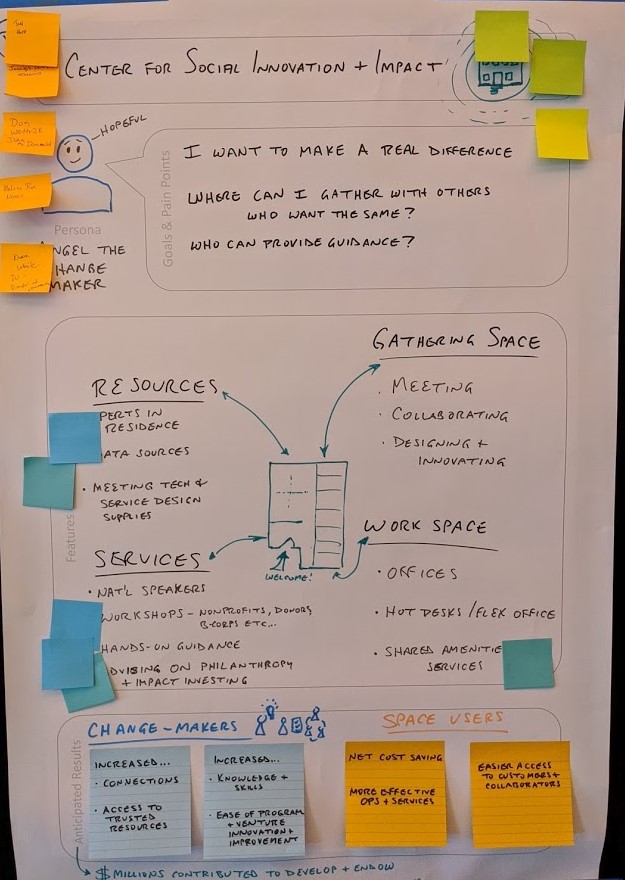 CENTER FOR SOCIAL INNOVATION + IMPACT
HOPEFUL
Persona
NGEL THE
HANGE
MAKER
Goals & Pain Points
I WANT TO MAKE A REAL DIFFERENCE
WHERE CAN I GATHER WITH OTHERS
WHO WANT THE SAME?
WHO CAN PROVIDE GUIDANCE?
Features
RESOURCES
PERTS IN
RESIDENCE
ATA SOURCES
• MEETING TECH &
SERVICE DESIGN
SUPPLIES
SERVICES
• NAT'L SPEAKERS
WORKSHOPS - NONPROFITS, DONORS
B-CORPS ETC...
HANDS-ON GUIDANCE
DVISING ON PHILANTHROPY
+ IMPACT INVESTING
WELCOME!
GATHERING SPACE
• MEETING
• COLLABORATING
• DESIGNING +
INNOVATING
WORK SPACE
• OFFICES
• HOT DESKS / FLEX OFFICE
• SHARED AMENITIE
SERVICES
Anticipated Results
CHANGE-MAKERS
INCREASED...
• CONNECTIONS
• ACCESS TO
TRUSTED
RESOURCES
INCREASED...
• KNOWLEDGE +
SKILLS
• EASE OF PROGRAM
+ VENTURE
INNOVATION +
IMPROVEMENT
SPACE USERS
NET COST SAVING
MORE EFFECTIVE
OPS + SERVICES
EASIER ACCESS
TO CUSTOMERS +
COLLABORATORS
$ MILLIONS CONTRIBUTED TO DEVELOP + ENDOW